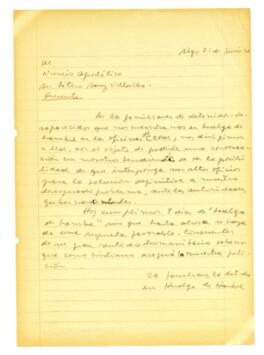 Stgo 21 de junio
Al
Nuncio Apostólico
Sr. Sótero Sanz Villalba
Presente
26 familiares de detenidos-de-
saparecidos que nos encontramos en huelga de
hambre en la oficina CEPAL, nos dirigimos
a Ud. con el objeto de pedirle una conversa-
ción con nosotros tendiente a la posibi-
lidad de que interponga sus altos oficios
para la solución definitiva a nuestro
problema, ante las autoridades
gubernamentales.
Hoy cumplimos 8 días de "huelga
de hambre" sin que hasta ahora se haya
dado una respuesta favorable. Conscientes
de su gran sentido humanitario sabemos
que como cristiano acogerá nuestra peti-
ción.
26 familiares de det. des.
en Huelga de Hambre